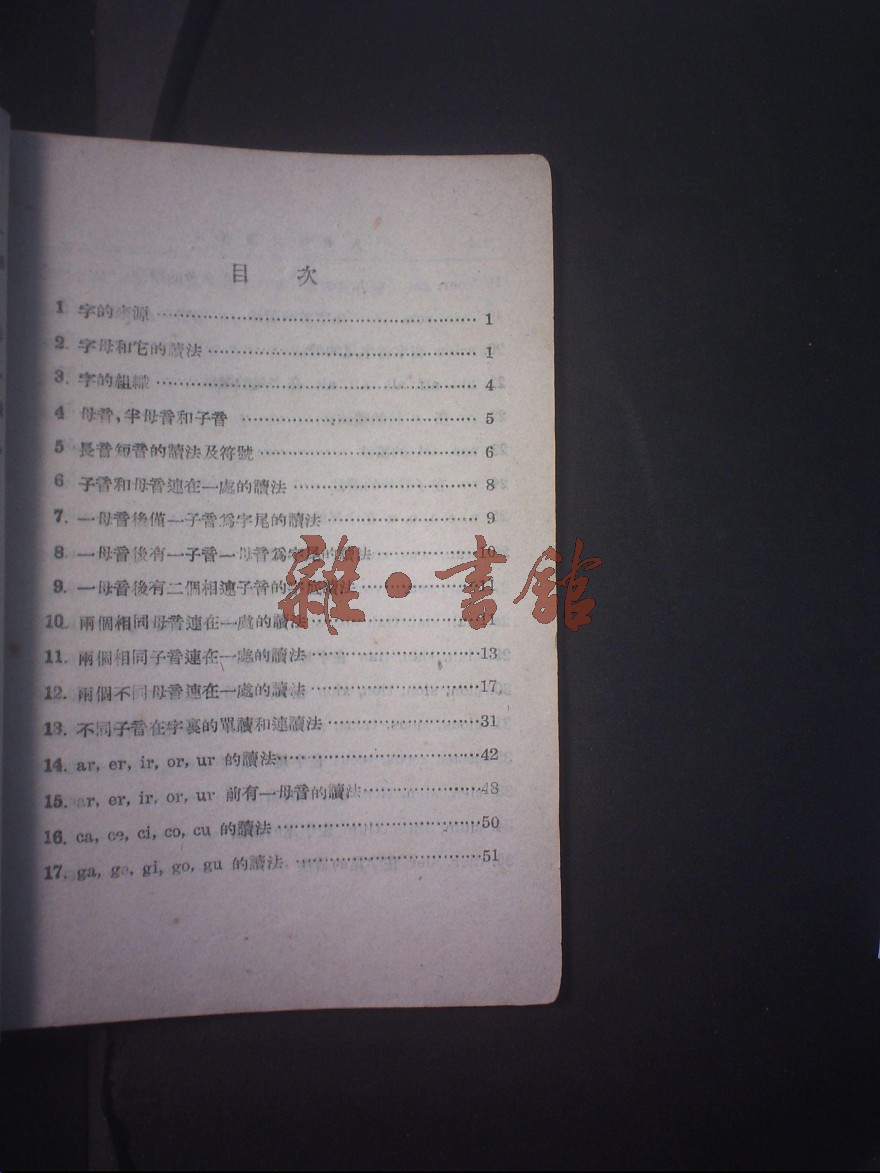 目 次
1 字的來源 1
2. 字母和它的讀法 1
3. 字的組織 4
4 母音、半母音和子音 5
5 長音短音的讀法及符號 6
6 子音和母音連在一處的讀法 8
7. 一母音後僅一子音爲字尾的讀法 9
8 一母音後有一子音一母音爲字尾的讀法 10
9. 一母音後有二個相連子音的字底讀法 11
10. 兩個相同母音連在一處的讀法 11
11. 兩個相同子音連在一處的讀法 13
12. 兩個不同母音連在一處的讀法 17
13. 不同子音在字裏的單讀和連讀法 31
14. ar, er, ir, or, ur 的讀法 42
15. ar, er, ir, or, ur 前有一母音的讀法 48
16. ca, ce, ci, co, cu 的讀法 50
17. ga, ge, gi, go, gu 的讀法 51
雜·書館